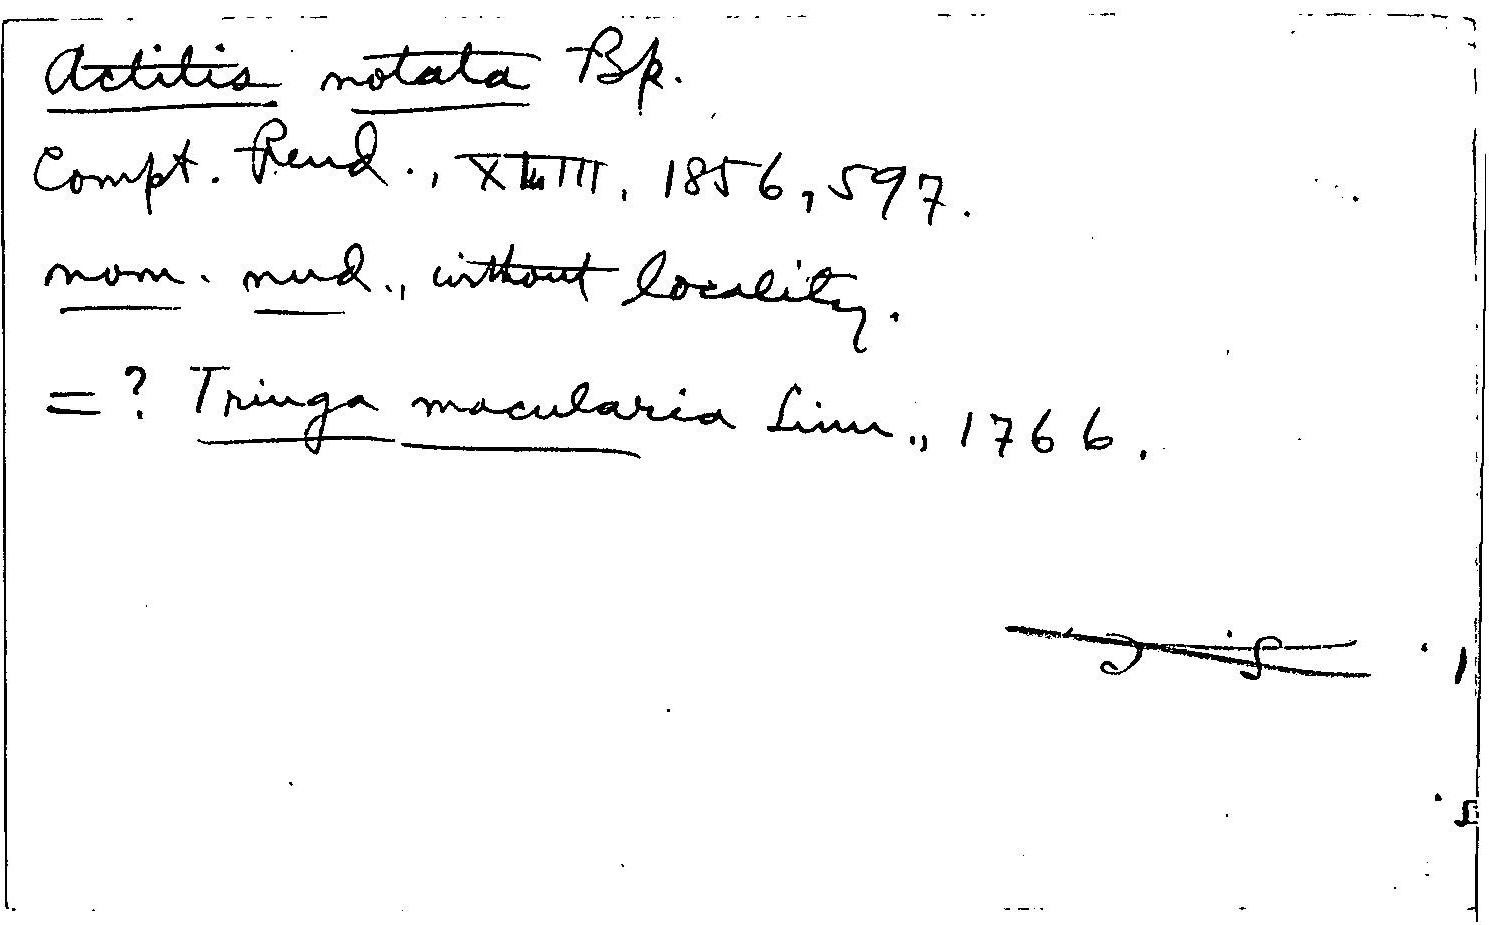 Actitis notata Bp.
Compt. Rend., XLIII, 1856, 597.
nom. nud., without locality.
=? Tringa macularia Linn., 1766.